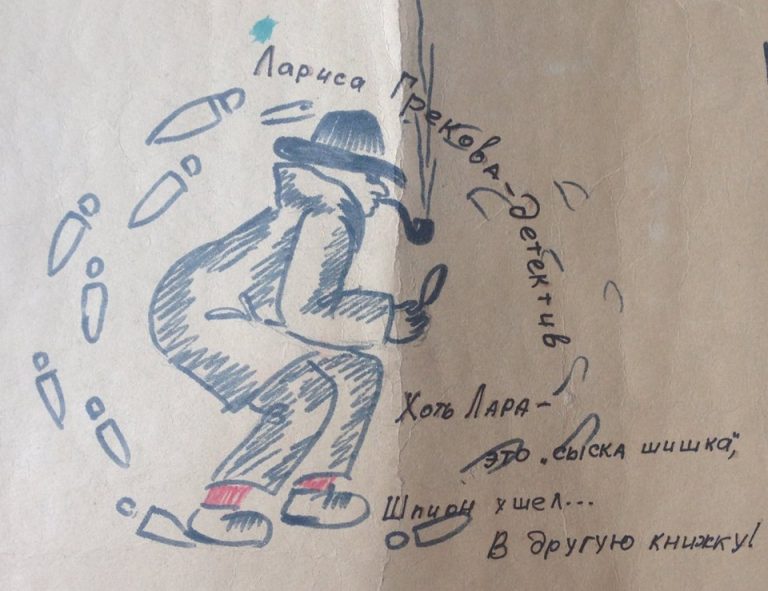 Лариса Грекова - детектив
Хоть Лара -
это „сыска шишка“,
Шпион ушел...
В другую книжку!